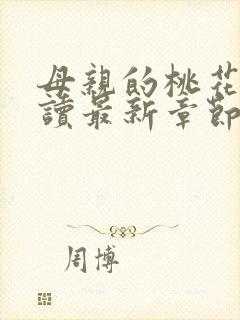 母親的桃花
讀最新章節
周博